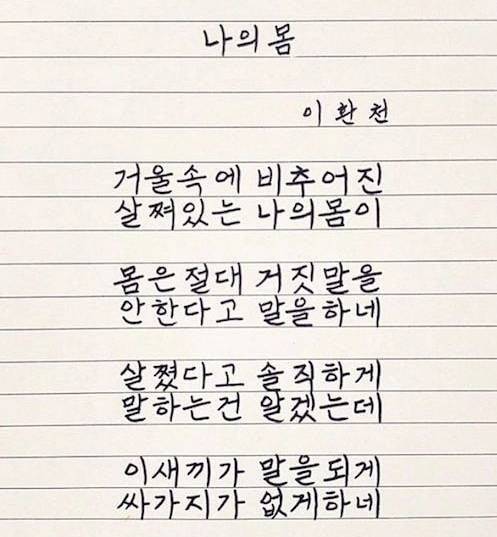 나의 몸
이환천
거울속에 비추어진
살쪄있는 나의몸이
몸은절대 거짓말을
안한다고 말을하네
살쪘다고 솔직하게
말하는건 알겠는데
이새끼가 말을되게
싸가지가 없게하네